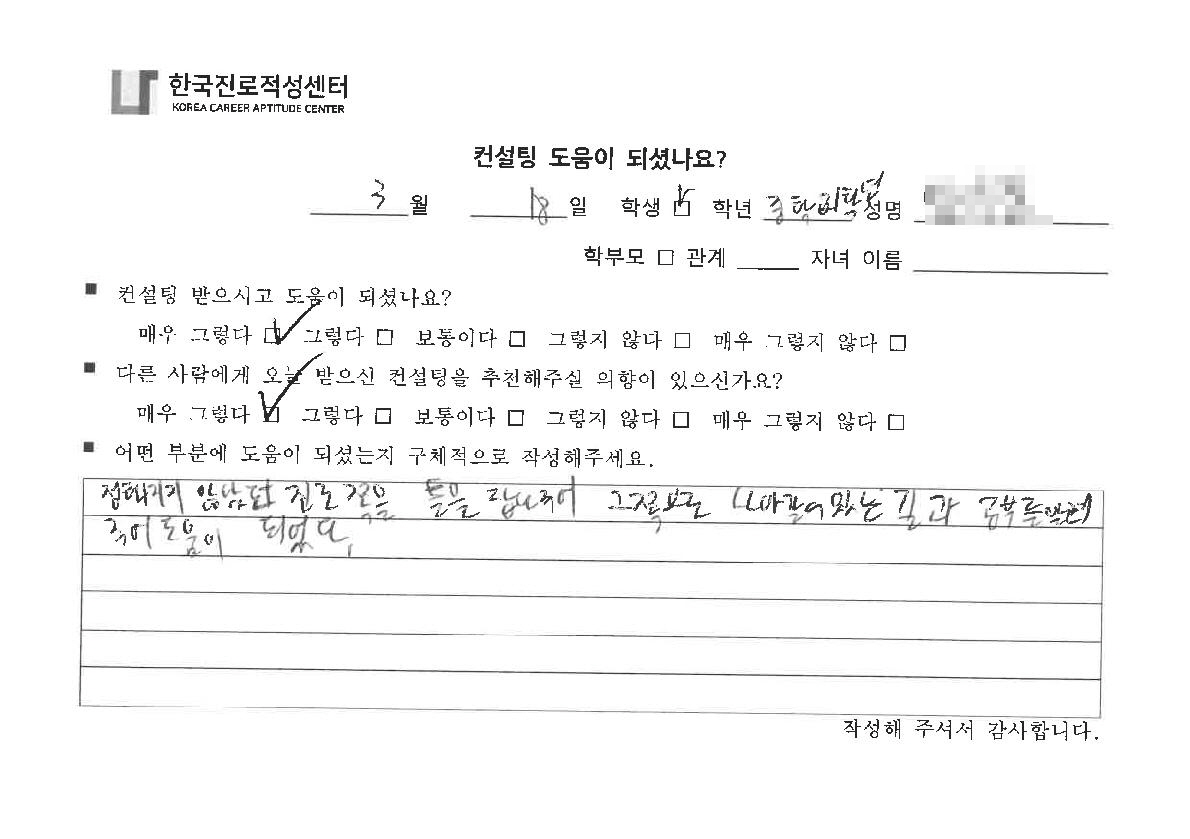 한국진로적성센터
KOREA CAREER APTITUDE CENTER
컨설팅 도움이 되셨나요?
3 월 18 일 학생 학년 성명
학부모 □ 관계 자녀 이름
■ 컨설팅 받으시고 도움이 되셨나요?
매우 그렇다 ☑ 그렇다 □ 보통이다 □ 그렇지 않다 □ 매우 그렇지 않다 □
■ 다른 사람에게 오늘 받으신 컨설팅을 추천해주실 의향이 있으신가요?
매우 그렇다 ☑ 그렇다 □ 보통이다 □ 그렇지 않다 □ 매우 그렇지 않다 □
■ 어떤 부분에 도움이 되셨는지 구체적으로 작성해주세요.
정해지지 않았던 진로 쪽을 틀을 주어 그쪽으로 길과 공부를
주어 도움이 되었다.
작성해 주셔서 감사합니다.